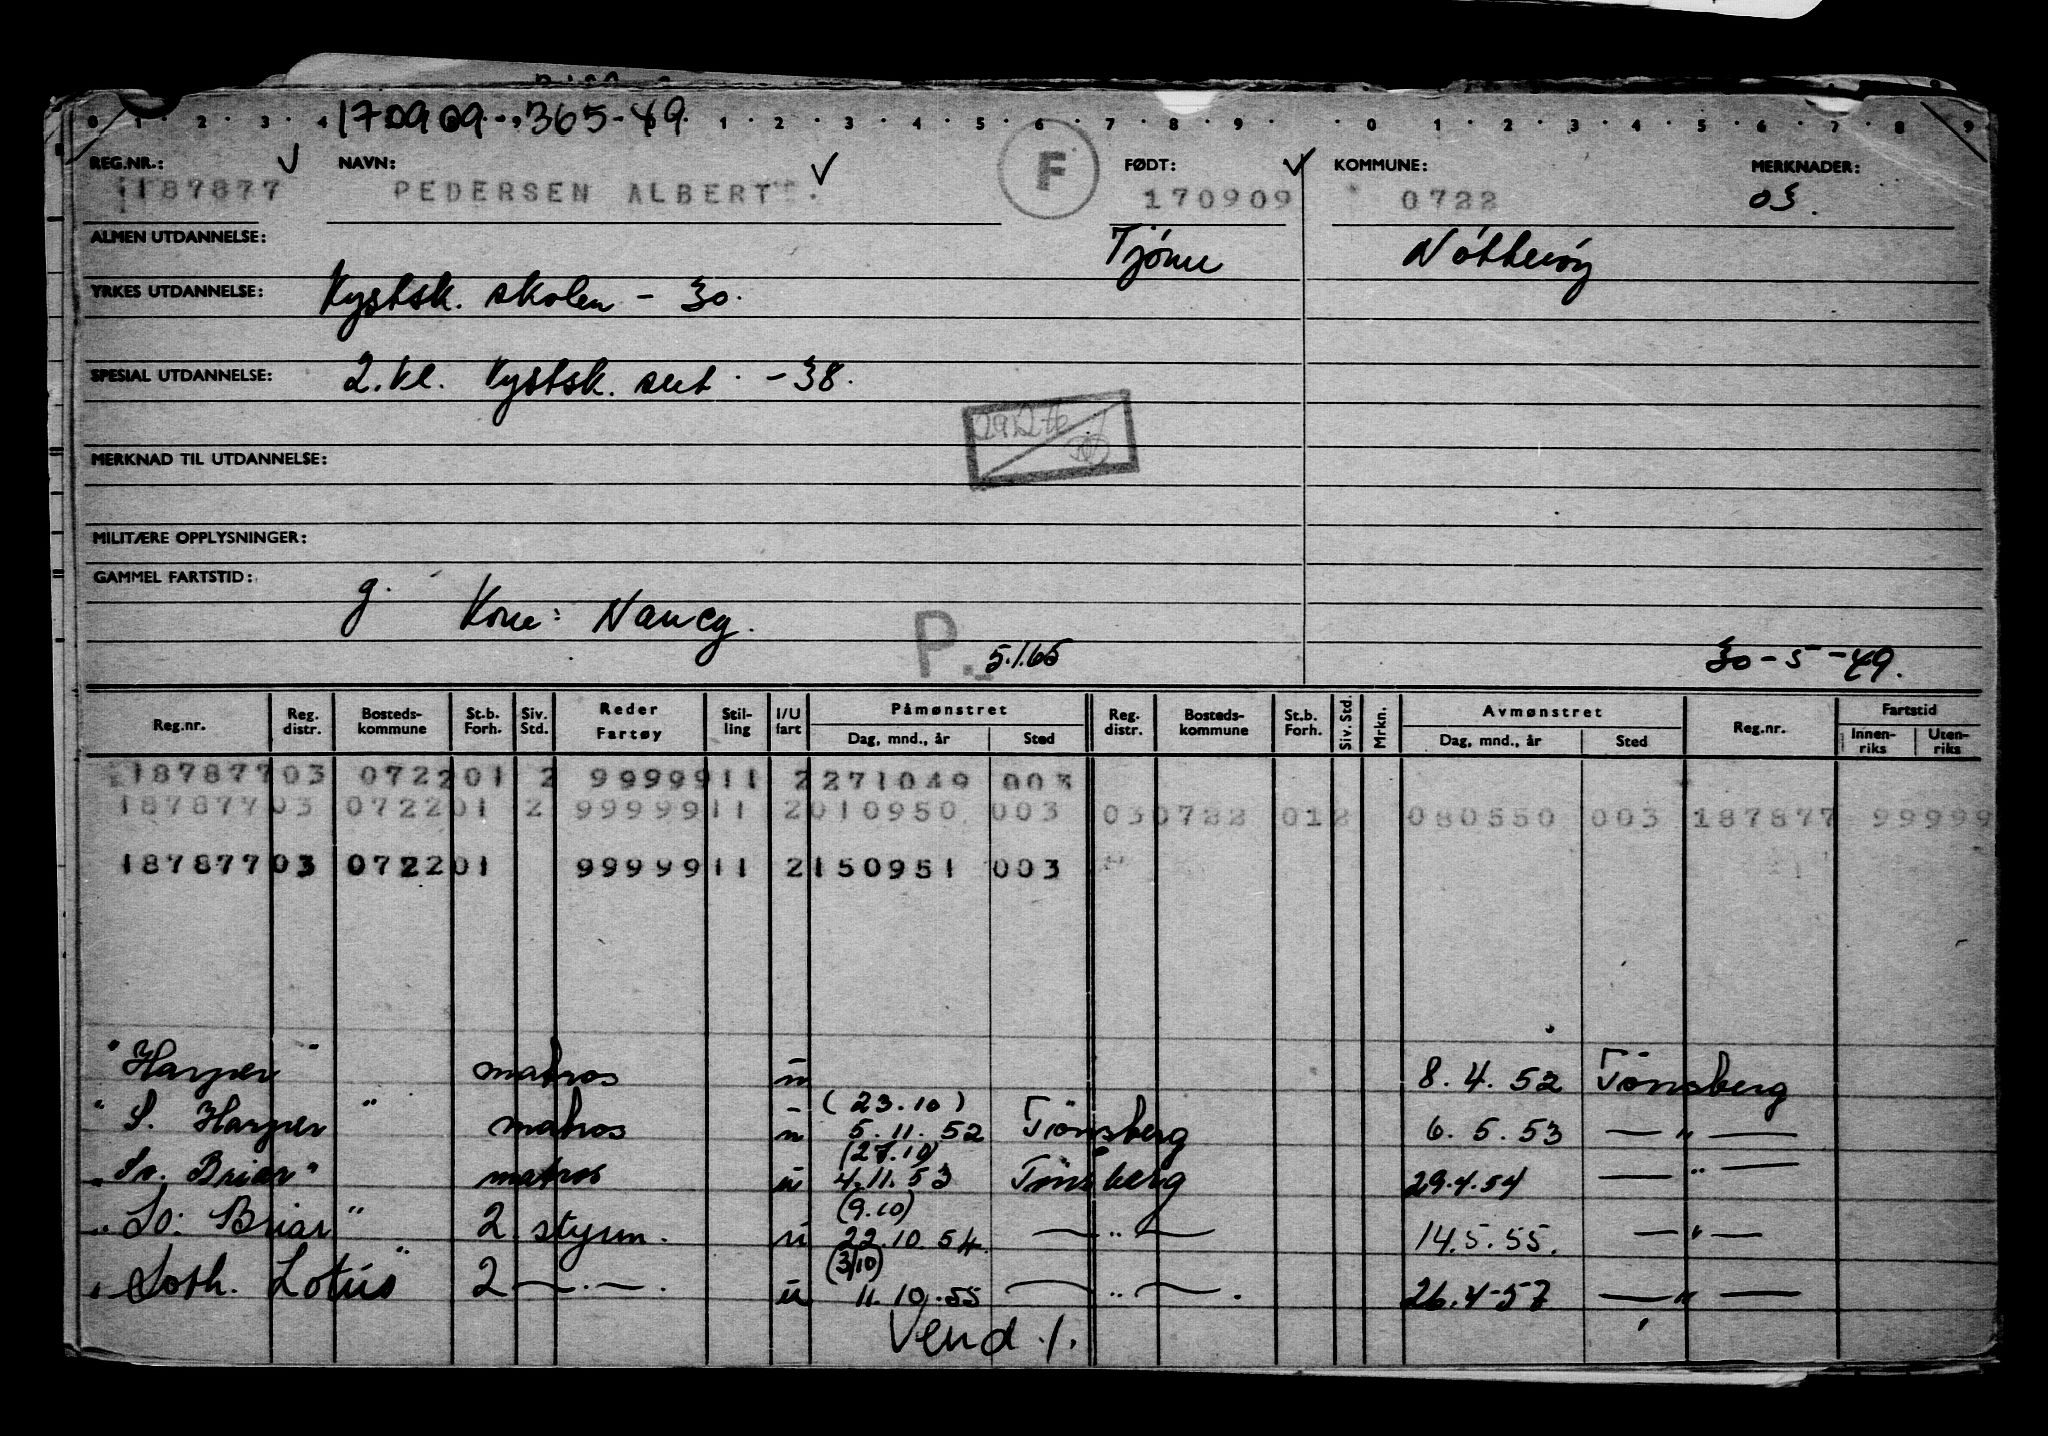 0 · 1 · 2 · 3 · 4 170909 365-49 1 · 2 · 3 · 4 · 5 · 6 · 7 · 8 · 9 · · 0 · 1 · 2 · 3 · 4 · 5 · 6 · 7 · 8 · 9
REG.NR.: NAVN: F FØDT: KOMMUNE: MERKNADER:
187877 PEDERSEN ALBERT 170909 0722 03.
ALMEN UTDANNELSE: Tjöme Nötteröy
YRKES UTDANNELSE: Kystsk. skolen - 30.
SPESIAL UTDANNELSE: 2. kl. Kystsk. sert. - 38.
291276
MERKNAD TIL UTDANNELSE:
MILITÆRE OPPLYSNINGER:
GAMMEL FARTSTID: g.
Kone: Nancy.
P. 5.1.65 30-5-49.
Reg.nr. Reg. distr. Bosteds-kommune St.b. Forh. Siv. Std. Reder Fartøy Stil-ling I/U fart Påmønstret Dag, mnd., år Sted Reg. distr. Bosteds-kommune St.b. Forh. Siv. Std. Mrkn. Avmønstret Dag, mnd., år Sted Reg.nr. Fartstid Innen-riks Uten-riks
187877 03 0722 01 2 99999 11 2 271049 003
187877 03 0722 01 2 99999 11 2 010950 003 03 0722 01 2 080550 003 187877 99999
187877 03 0722 01 99999 11 2 150951 003
"Harper" matros u 8.4.52 Tönsberg
(23.10)
"S. Harper" matros u 5.11.52 Tönsberg 6.5.53 — " —
(27.10)
"So. Briar" matros u 4.11.53 Tönsberg 29.4.54 — " —
(9.10)
"So. Briar" 2 styrm. u 22.10.54. — " — 14.5.55. — " —
(3/10)
"Soth. Lotus" 2 — " —. u 11.10.55 — " —. 26.4-57 — " —
Vend ./.